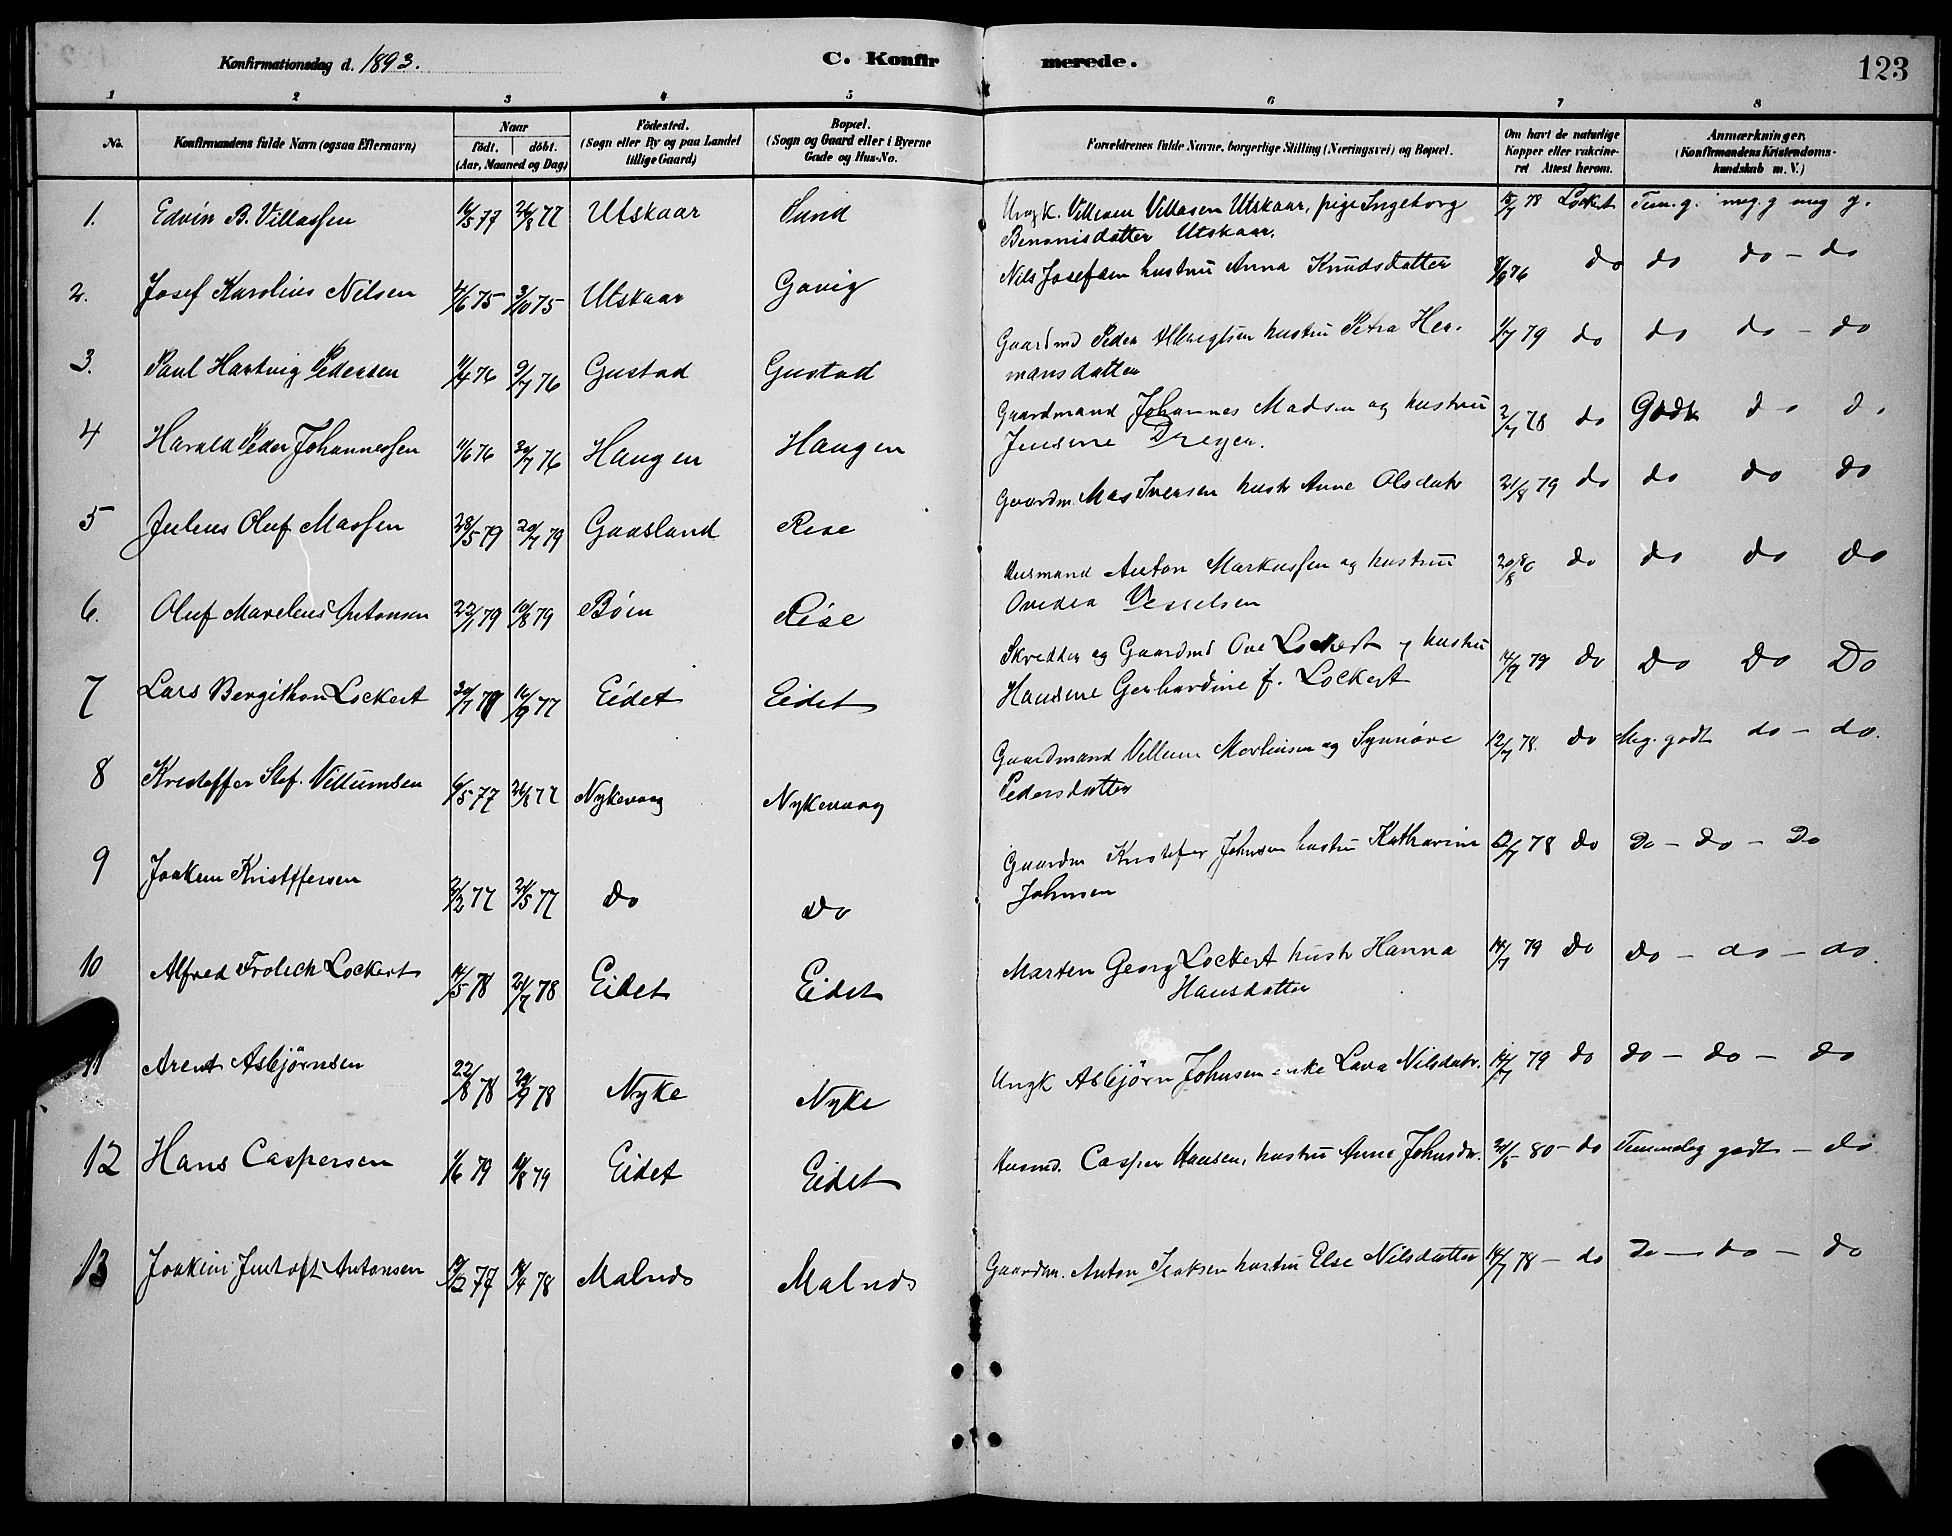 Konfirmationsdag d. 1893.
C. Konfirmerede.
123
1 2 3 4 5 6 7 8
No.
Konfirmandens fulde Navn (ogsaa Efternavn)
Naar
födt. döbt.
(Aar, Maaned og Dag)
Födested.
(Sogn eller By og paa Landet
tillige Gaard)
Bopæl.
(Sogn og Gaard eller i Byerne
Gade og Hus-No.
Forældrenes fulde Navne, borgerlige Stilling (Næringsvei) og Bopæl.
Om havt de naturlige
Kopper eller vakcine-
ret Attest herom.
Anmærkninger.
(Konfirmandens Kristendoms-
kundskab m. V.)
1. Edvin B. Villassen 77 26/8 77 Utskaar Sund Ungk. Villum Villasen Utskaar, pige Ingeborg 78 Lockert Tem. g. meg. g meg g.
Benonisdatter Utskaar.
2. Josef Karolius Nilsen 4/6 75 3/10 75 Utskaar Gavig Nils Josefsen hustru Anna Knudsdatter 76 do do do - do
3. Paul Hartvig Pedersen 11/4 76 9/7 76 Gustad Gustad Gaardmd Peder hustru Petra Her- 79 do do do - do
mansdatter
4 Harald Peder Johannessen 11/6 76 30/7 76 Haugen Haugen Gaardmand Johannes Madsen og hustru 2/7 78 do Godt do do
Jensine Dreyer.
5 Julius Oluf Massen 28/5 79 20/7 79 Gaasland Rise Gaardm. Mas Iversen hustr Anne Olsdatr 21/8 79 do do do do
6. Oluf Marelius Antonsen 22/1 79 10/8 79 Böen Rise Husmand Anton Markussen og hustru 20/8 80 do do do do
Ovedia Vesselsen
7 Lars Bergithon Lockert 30/7 77 16/9 77 Eidet Eidet Skredder og Gaardmd Ove Lockert og hustru 14/7 79 do Do Do Do
Hansine Gerhardine f. Lockert
8 Kristoffer Stef. Villumsen 6/5 77 26/8 77 Nykevaag Nykevaag Gaardmand Villum Mortensen og Synnöve 12/7 78. do Meg. godt do - do.
Pedersdatter
9 Joakem Kristffersen 2/2 77 77 do Do Gaardm Kristofer Johnsen hustru Katharine 12/7 78 do Do - do - Do
Johnsen
10 Alfred Frolich Lockert 14/5 78 21/7 78 Eidet Eidet Marten Georg Lockert hustr Hanna 14/7 79 do Do - do - do.
Hansdatter
11 Arent Asbjörnsen 22/8 78 29/9 78 Nyke Nyke Ungk Asbjörn Johnsen enke Lava Nilsdatr. 14/7 79 do do - do - do
12 Hans Caspersen 1/6 79 79 Eidet Eidet Husmd. Casper Hansen, hustru Anne Johnsdr. 80 - do Temmelig godt - do
13 Joakim Antonsen 77 78 Malnes Malnes Gaardm. Anton Isaksen hustru Else Nilsdatter 14/7 78 - do Do - do - do